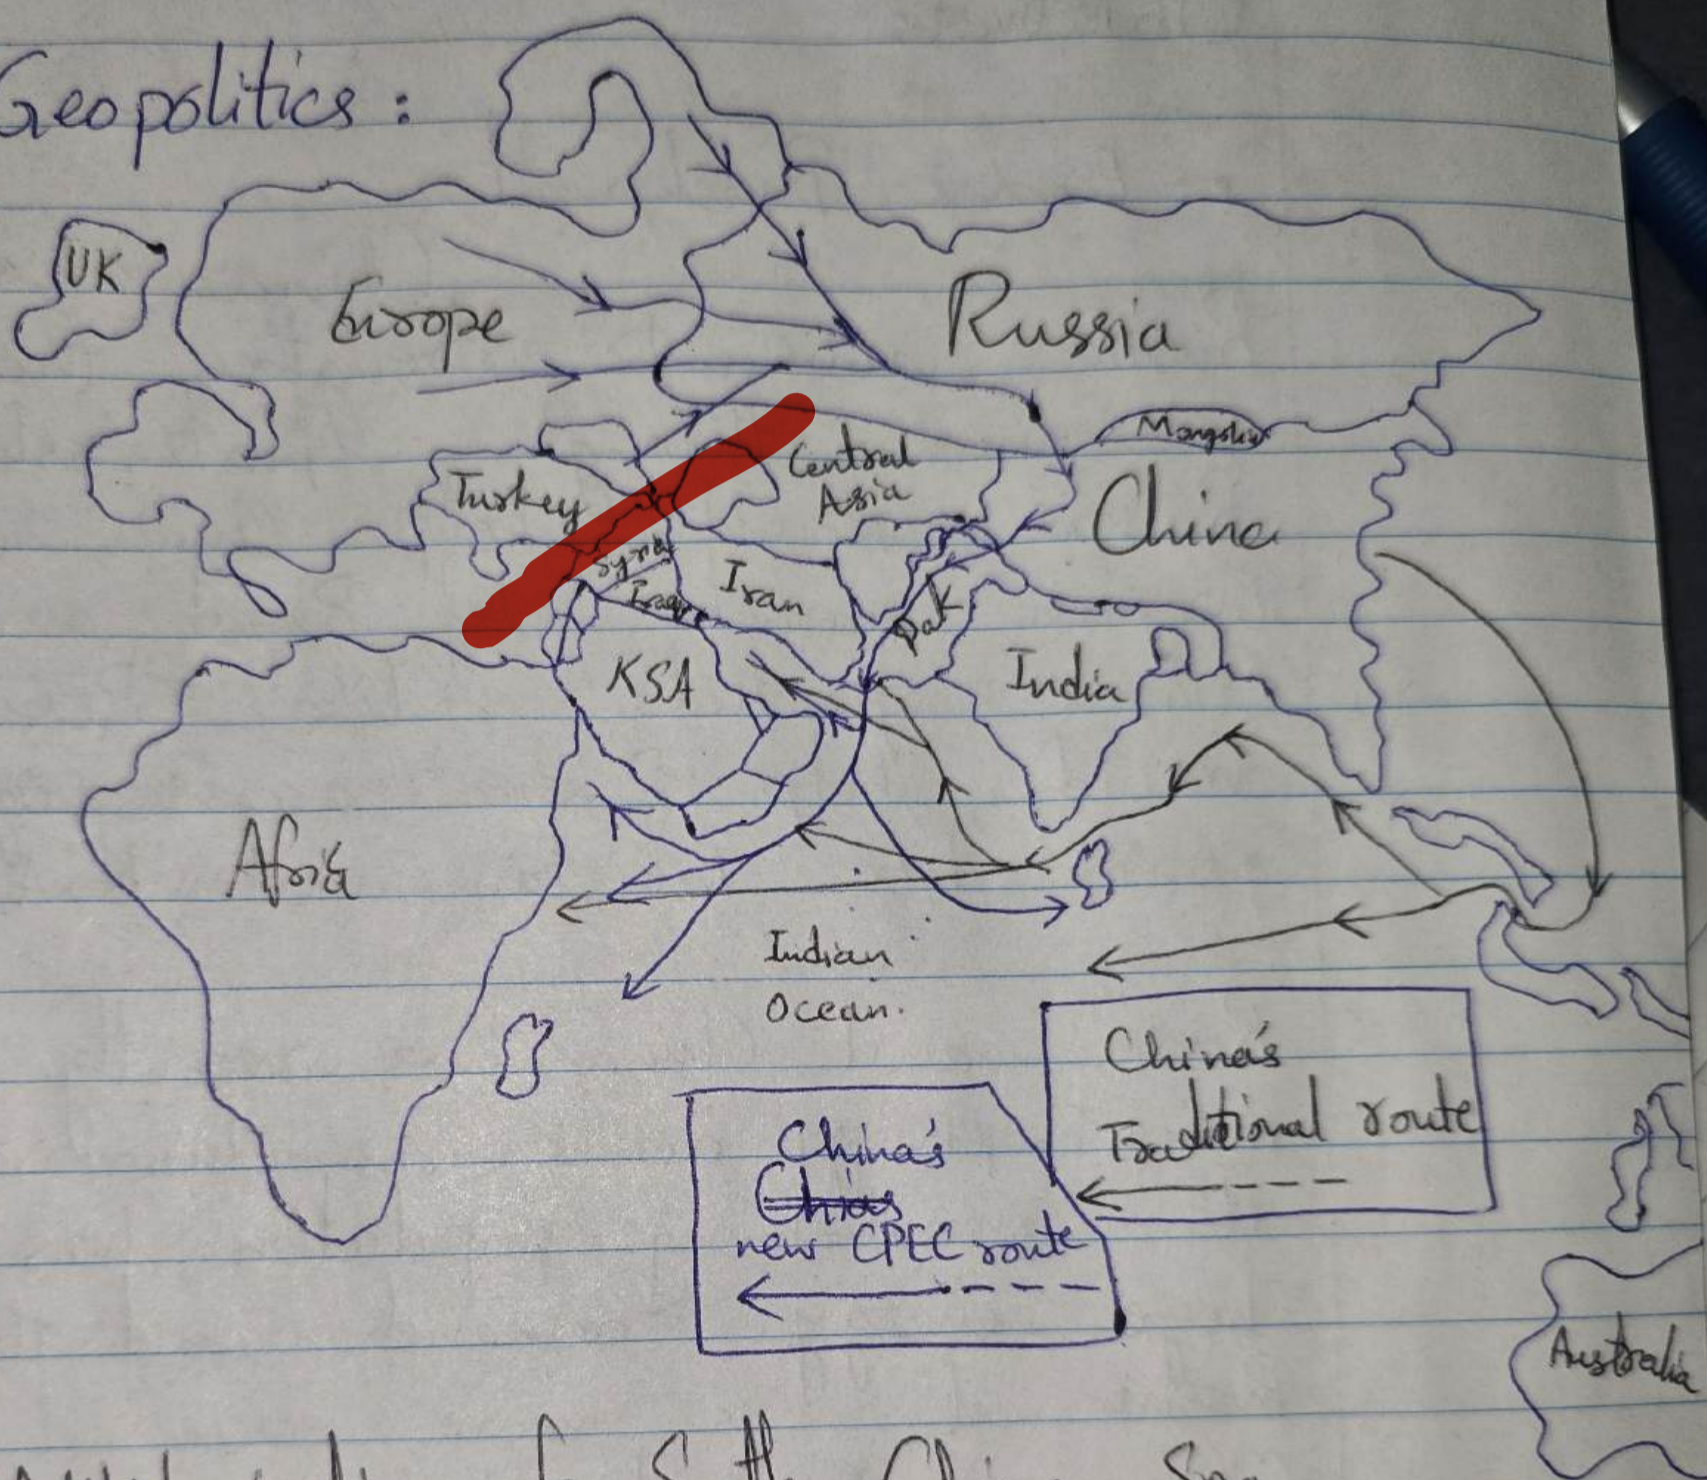 Geopolitics :
UK
Europe
Russia
Mongolia
Central
Asia
Turkey
China
Syria
Iran
Iraq
Pak
KSA
India
Africa
Indian
Ocean.
China's
Traditional route
China's
new CPEC route
Australia